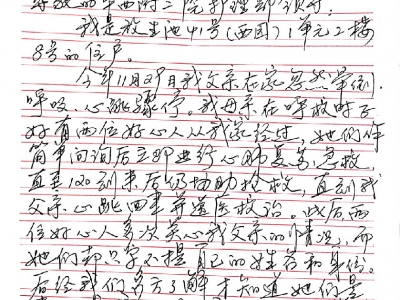 尊敬的华西附二院护理部领导:
我是放生池41号(西园)1单元2楼
8号的住户。
今年11月29日我父亲在家忽然晕倒,
呼吸、心跳骤停。我母亲在呼救时正
好有两位好心人从我家经过,她们作
简单问询后立即进行心肺复苏急救,
直至120到来后仍协助抢救,直到我
父亲心跳回来并送医救治。此后两
位好心人多次关心我父亲的情况,而
她们却只字不提自己的姓名和身份。
后经我们多方了解才知道她们是